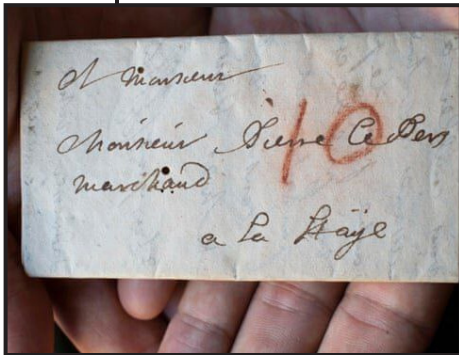 A Monsieur
10
Monsieur Pierre Le Pers
marchand
a La Haÿe